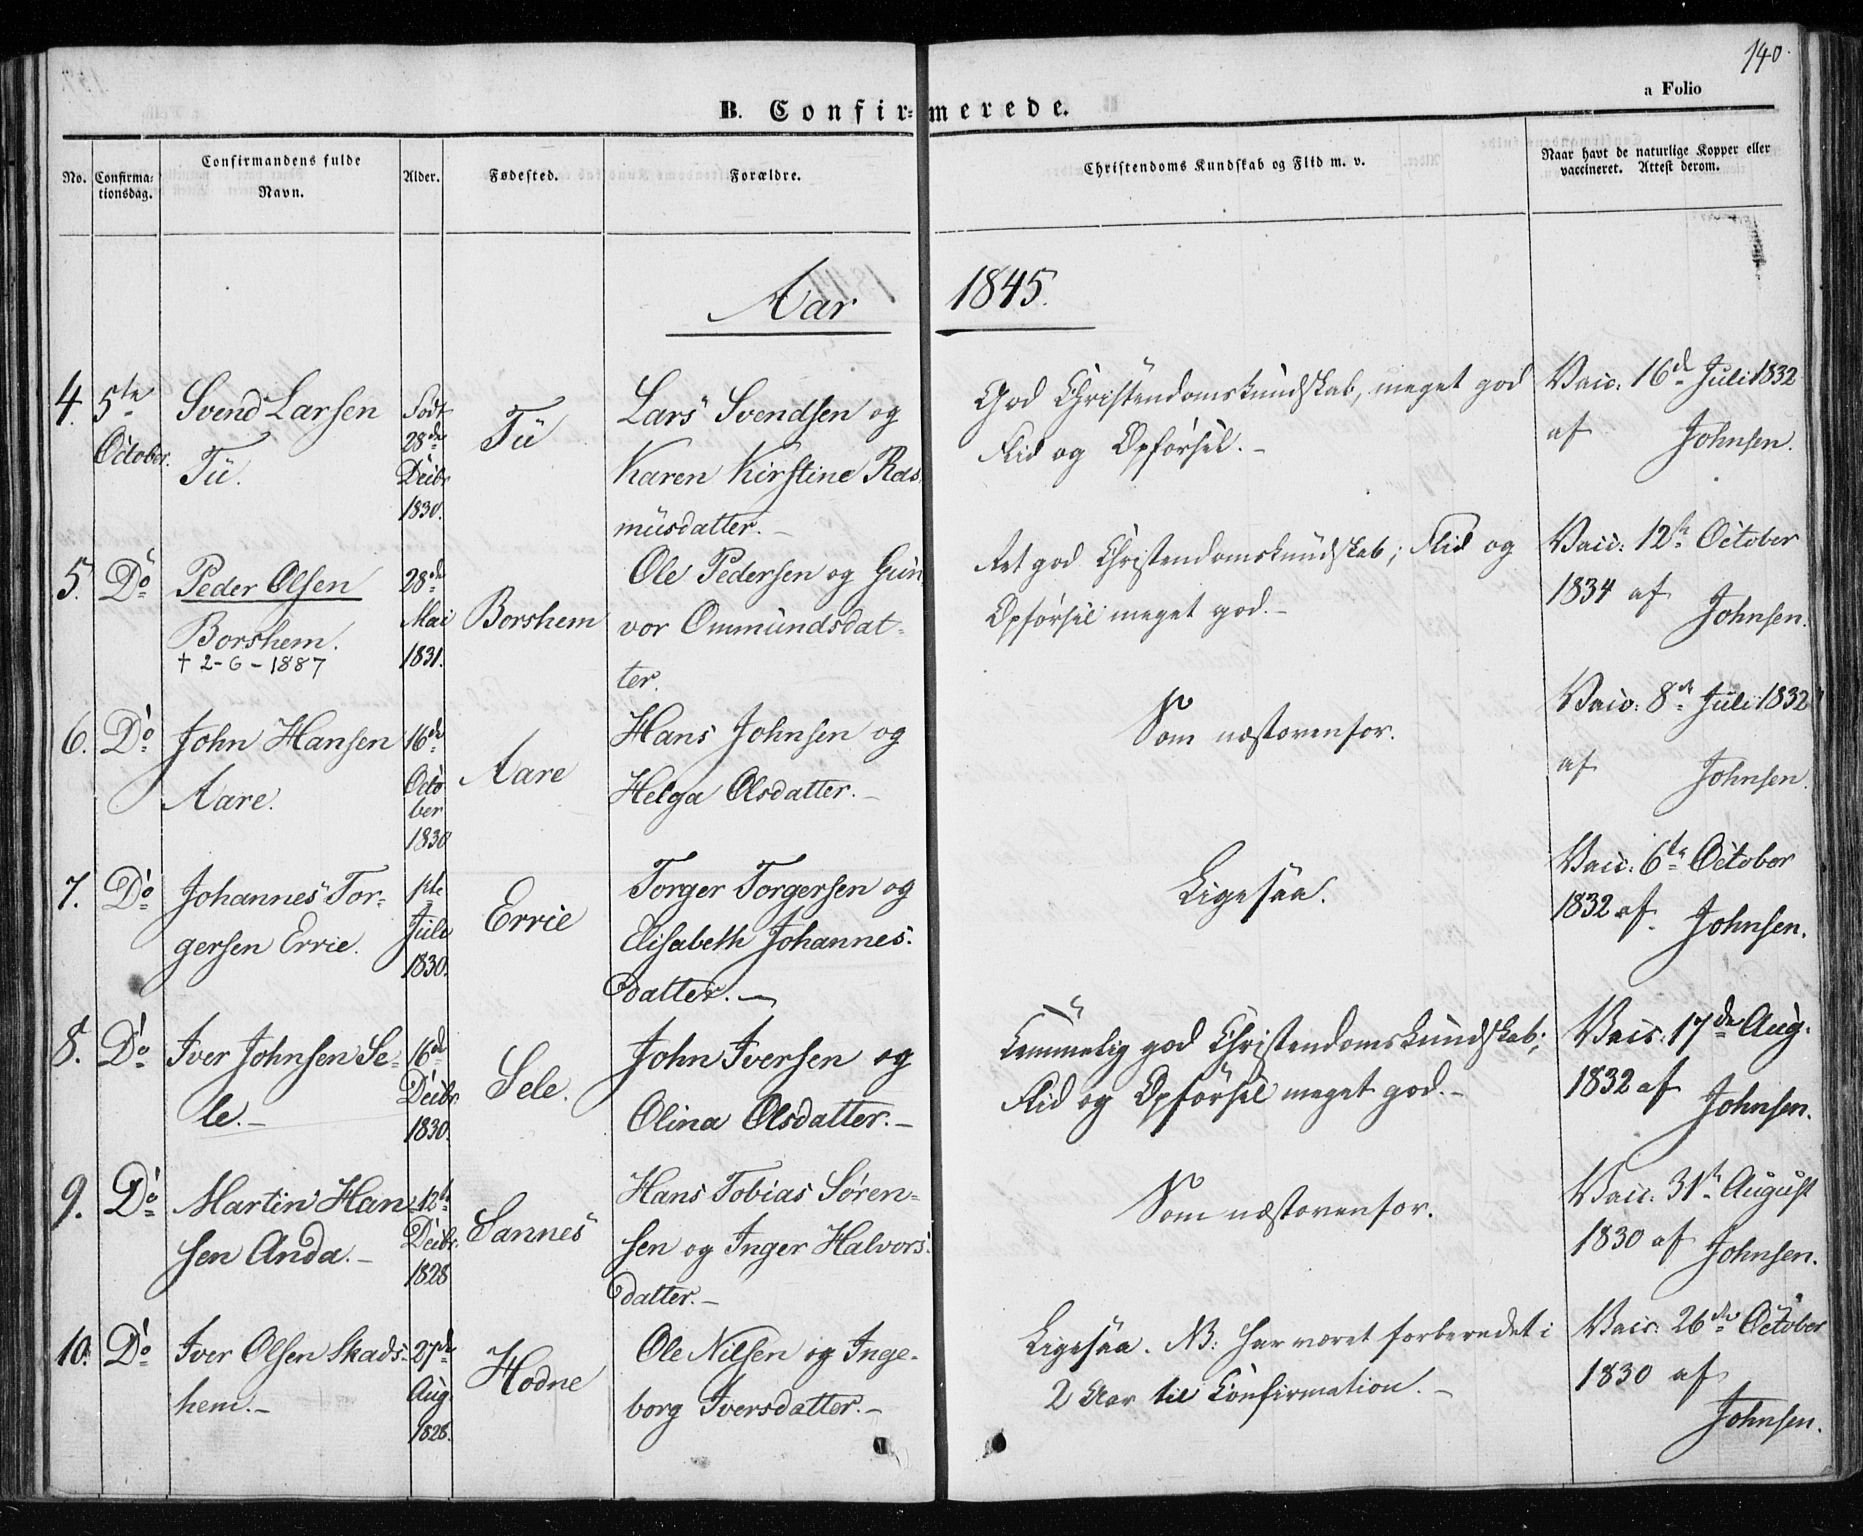 140.
a Folio
B. Confir=merede.
No.
Confirma=
tionsdag.
Confirmandens fulde
Navn.
Alder.
Fødested.
Forældre.
Christendoms Kundskab og Flid m. v.
Naar havt de naturlige Kopper eller
vaccineret. Attest derom.
Aar 1845.
4.
5te
October.
Svend Larsen
Tü.
Født
28de
Decbr
1830.
Tü
Lars Svendsen og
Karen Kirstine Ras
müsdatter. –
God Christendomskundskab, meget god
Flid og Opførsel. –
Vacc: 16de Juli 1832
af Johnsen.
5.
Do
Peder Olsen
Borshem.
+ 2-6-1887
28de
Mai
1831.
Borshem
Ole Pedersen og Gün
vor Ommündsdat-
ter.
Ret god Christendomskundskab; Flid og
Opførsel meget god. –
Vacc: 12te October
1834 af Johnsen.
6.
Do
John Hansen
Aare.
16de
Octo
ber
1830
Aare
Hans Johnsen og
Helga Olsdatter. –
Som næstovenfor.
Vacc: 8de Juli 1832
af Johnsen.
7.
Do
Johannes Tor-
gersen Errie.
1ste
Juli
1830.
Errie
Torger Torgersen og
Elisabeth Johannes-
datter. –
Ligesaa.
Vacc: 6te October
1832 af Johnsen.
8.
Do
Iver Johnsen Se-
le. –
16de
Decbr.
1830.
Sele.
John Iversen og
Olina Olsdatter. –
Temmelig god Christendomskundskab;
Flid og Opførsel meget god. –
Vacc: 17de Aug.
1832 af Johnsen.
9.
Do
Martin Han
sen Anda. –
12te
Decbr.
1828
Sannes
Hans Tobias Søren-
sen og Inger Halvors-
datter. –
Som næstovenfor.
Vacc: 31te August
1830 af Johnsen.
10.
Do
Iver Olsen Skads-
hem. –
27de
Aug.
1828.
Hodne
Ole Nilsen og Inge-
borg Iversdatter. –
Ligesaa. NB: har været forberedet i
2 Aar til Confirmation. –
Vacc: 26de October
1830 af
Johnsen.